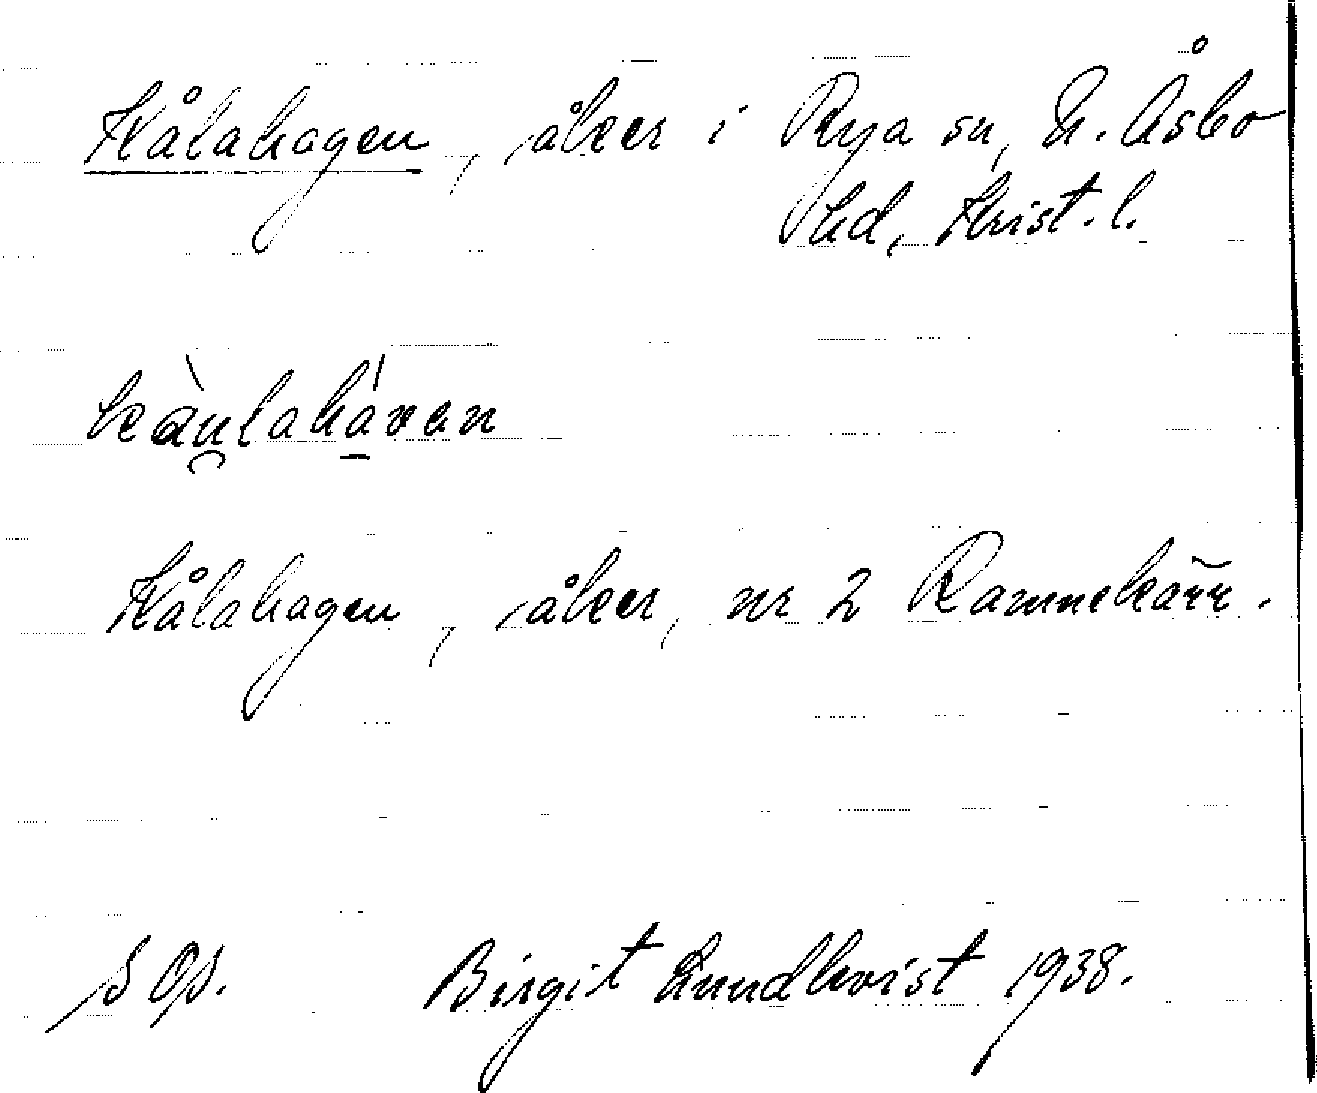 Kålahagen, åker i Rya sn, N. Åsbo
hd, Krist. l.
kàu̯lahá̱van
Kålahagen, åker, nr 2 Rammekärr.
Birgit Lundkvist 1938.